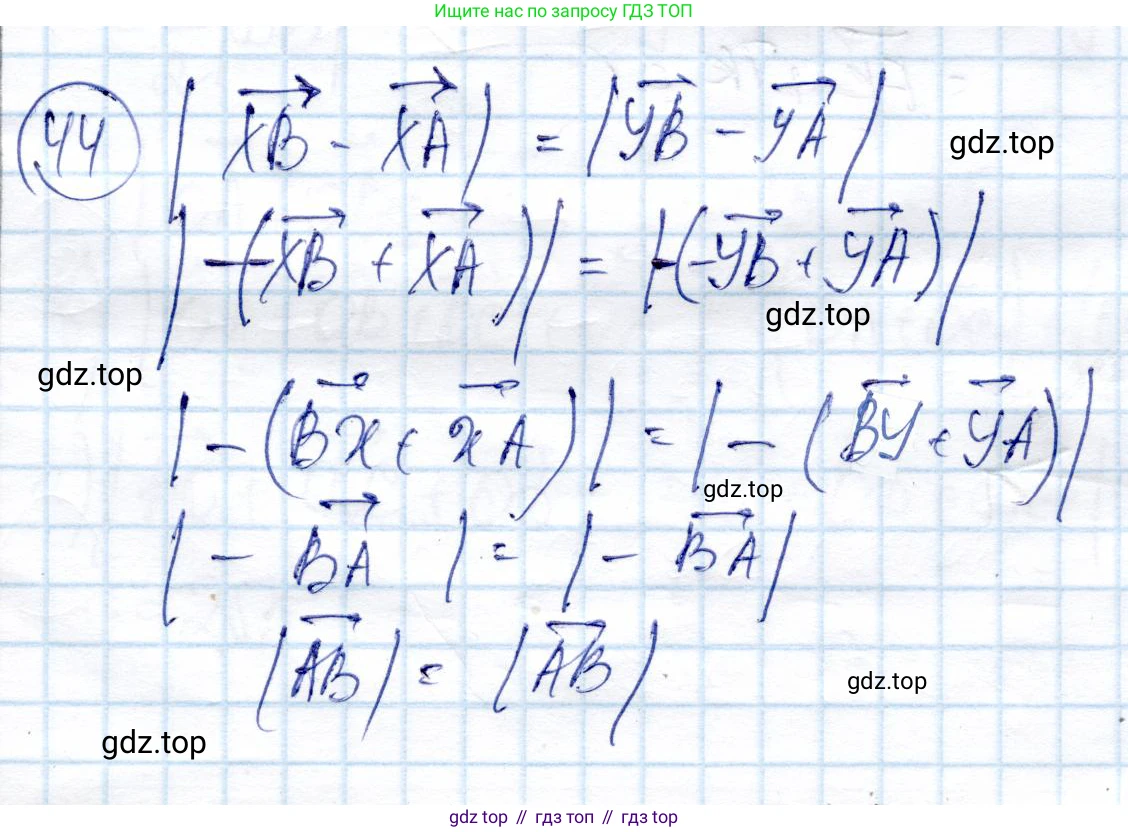 Ищите нас по запросу ГДЗ ТОП
44 | XB - XA | = | YB - YA |
gdz.top
| -(-XB + XA) | = | -(-YB + YA) |
gdz.top
gdz.top
| - (BX + XA) | = | - (BY + YA) |
gdz.top
| - BA | = | - BA |
| AB | = | AB |
gdz.top
gdz.top
gdz топ // гдз топ // гдз top